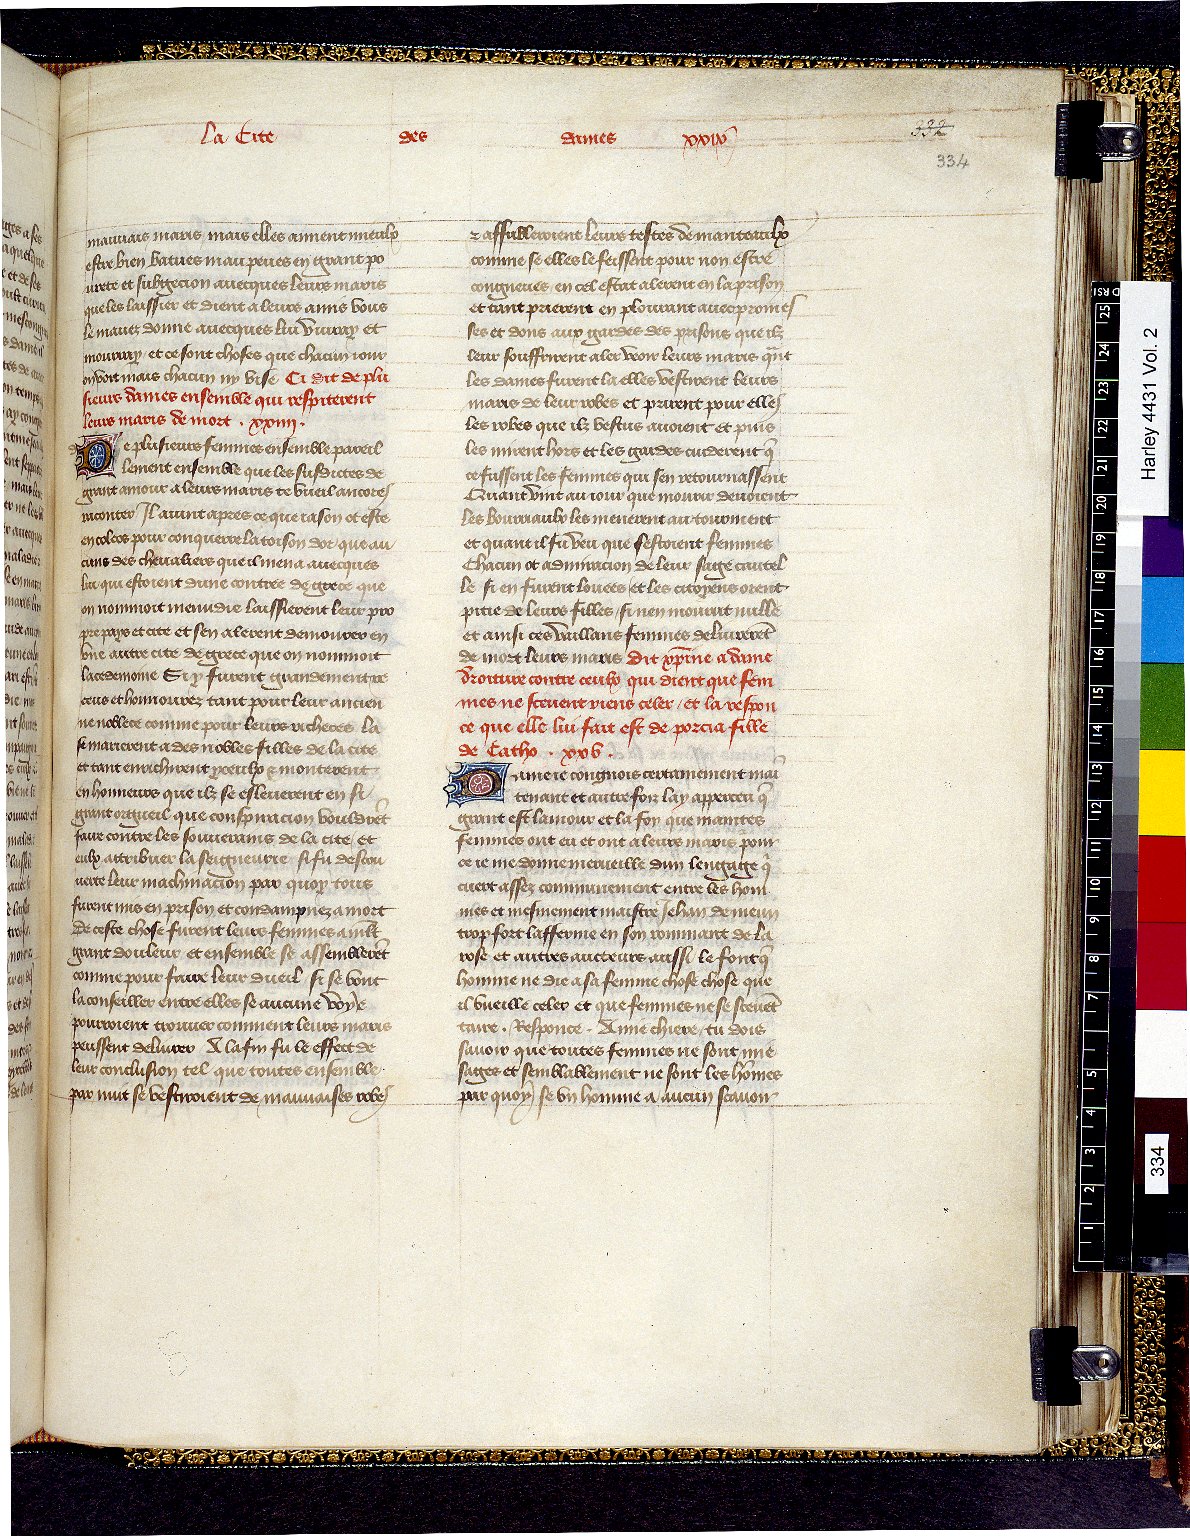 La Cite des dames xxix
332
334
mauuais maris mais elles aiment mieulx
estre bien batues mau peues en grant po
urete et subgecion auecques leurs maris
que les laissier et dient a leurs amis vous
le mauez donne auecques lui viuray et
mourray et ce sont choses que chacun iour
on voit mais chacun ny vise Ci dit de plu
sieurs dames ensemble qui respiterent
leurs maris de mort . xxiiii .
De plusieurs femmes ensemble pareil
lement ensemble que les susdictes de
grant amour a leurs maris te vueil ancores
raconter Jl auint apres ce que iason ot este
en colcos pour conquerre la toison dor que au
cuns des cheualiers que il mena auecques
lui qui estoient dune contree de grece que
on nommoit menudie laissierent leur pro
pre pays et cite et sen alerent demourer en
vne autre cite de grece que on nommoit
lacedemoine Si y furent grandement re
ceus et honnourez tant pour leur ancien
ne noblece comme pour leurs richeces La
se marierent a des nobles filles de la cite
et tant enrichirent yceulx et monterent
en honneurs que ilz se esleuerent en si
grant orgueil que conspiracion vouldrent
faire contre les souuerains de la cite et
eulx attribuer la seigneurie si fu descou
uerte leur machinacion par quoy tous
furent mis en prison et condampnez a mort
De ceste chose furent leurs femmes a mlt
grant douleur et ensemble se assemblerent
comme pour faire leur dueil si se vont
la conseiller entre elles se aucune voye
pourroient trouuer comment leurs maris
peussent deliurer A la fin fu le effect de
leur conclusion tel que toutes ensemble
par nuit se vestiroient de mauuaises robes
et affubleroient leurs testes de manteaulx
comme se elles le feissent pour non estre
congneues en cel estat alerent en la prison
et tant prierent en plourant auec promes
ses et dons aux gardes des prisons que ilz
leur souffrirent aler veoir leurs maris qnt
les dames furent la elles vestirent leurs
maris de leur robes et prirent pour elles
les robes que ilz vestus auoient et puis
les mirent hors et les gardes cuiderent q̃
ce fussent les femmes qui sen retournassent
Quant vint au iour que mourir deuoient
les bourriaulx les menerent au tourment
et quant il fu veu que sestoient femmes
Chacun ot admiracion de leur sage cautel
le si en furent louees et les citoyens orent
pitie de leurs filles si nen mourut nulle
et ainsi ces vaillans femmes deliurerent
de mort leurs maris Dit xp̃ine a dame
droiture contre ceulx qui dient que fem
mes ne sceuent riens celer / et la respon
ce que elle lui fait est de porcia fille
de Catho . xxv .
Dame ie congnois certainement mai
tenant et autre foiz lay apperceu q̃
grant est lamour et la foy que maintes
femmes ont eu et ont a leurs maris pour
ce ie me donne merueille dun lengage q̃
cuert assez communement entre les hom
mes et mesmement maistre Jehan de meun
trop fort lafferme en son rommant de la
rose et autres aucteurs aussi le font q̃
homme ne die a sa femme chose chose que
il vueille celer et que femmes ne se sceuẽt
taire . Responce . Amie chiere / tu dois
sauoir que toutes femmes ne sont mie
sages et semblablement ne sont les hõmes
par quoy se vn homme a aucun scauoir
Harley 4431 Vol. 2
334
25
24
23
22
21
20
19
18
17
16
15
14
13
12
11
10
9
8
7
6
5
4
3
2
1